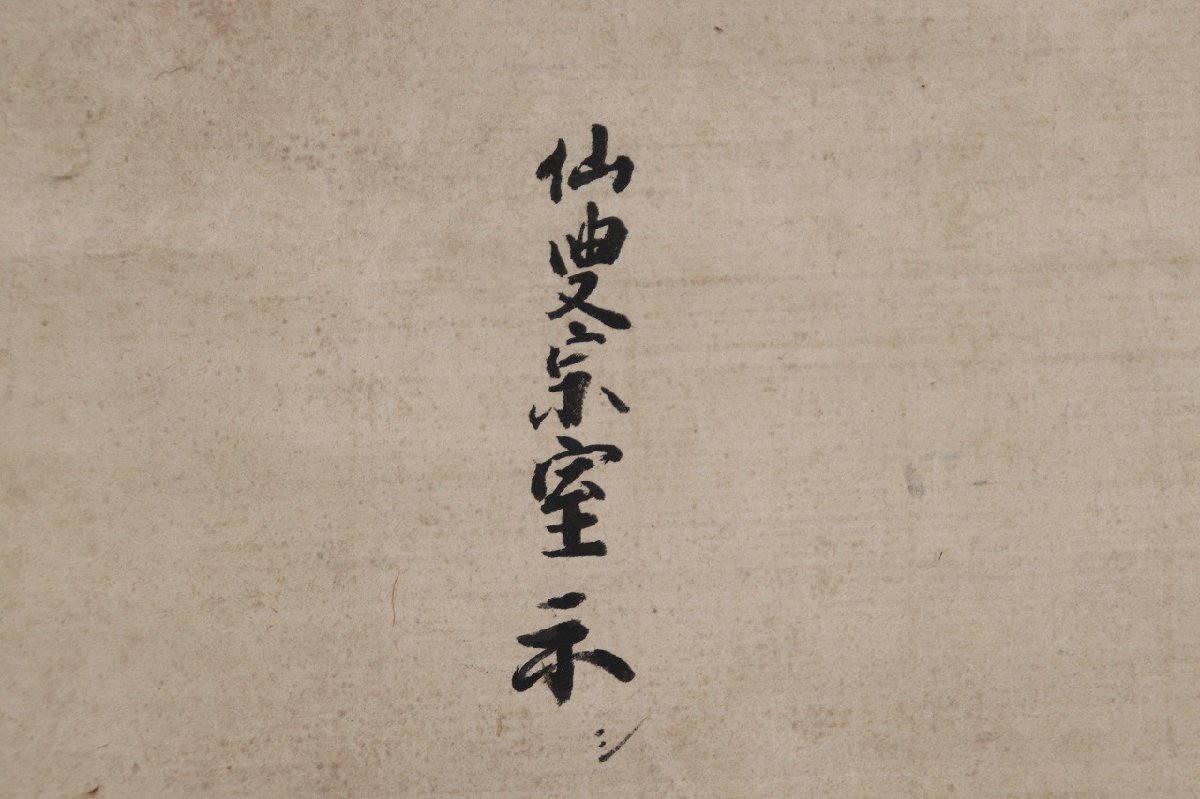 仙叟宗室 示シ